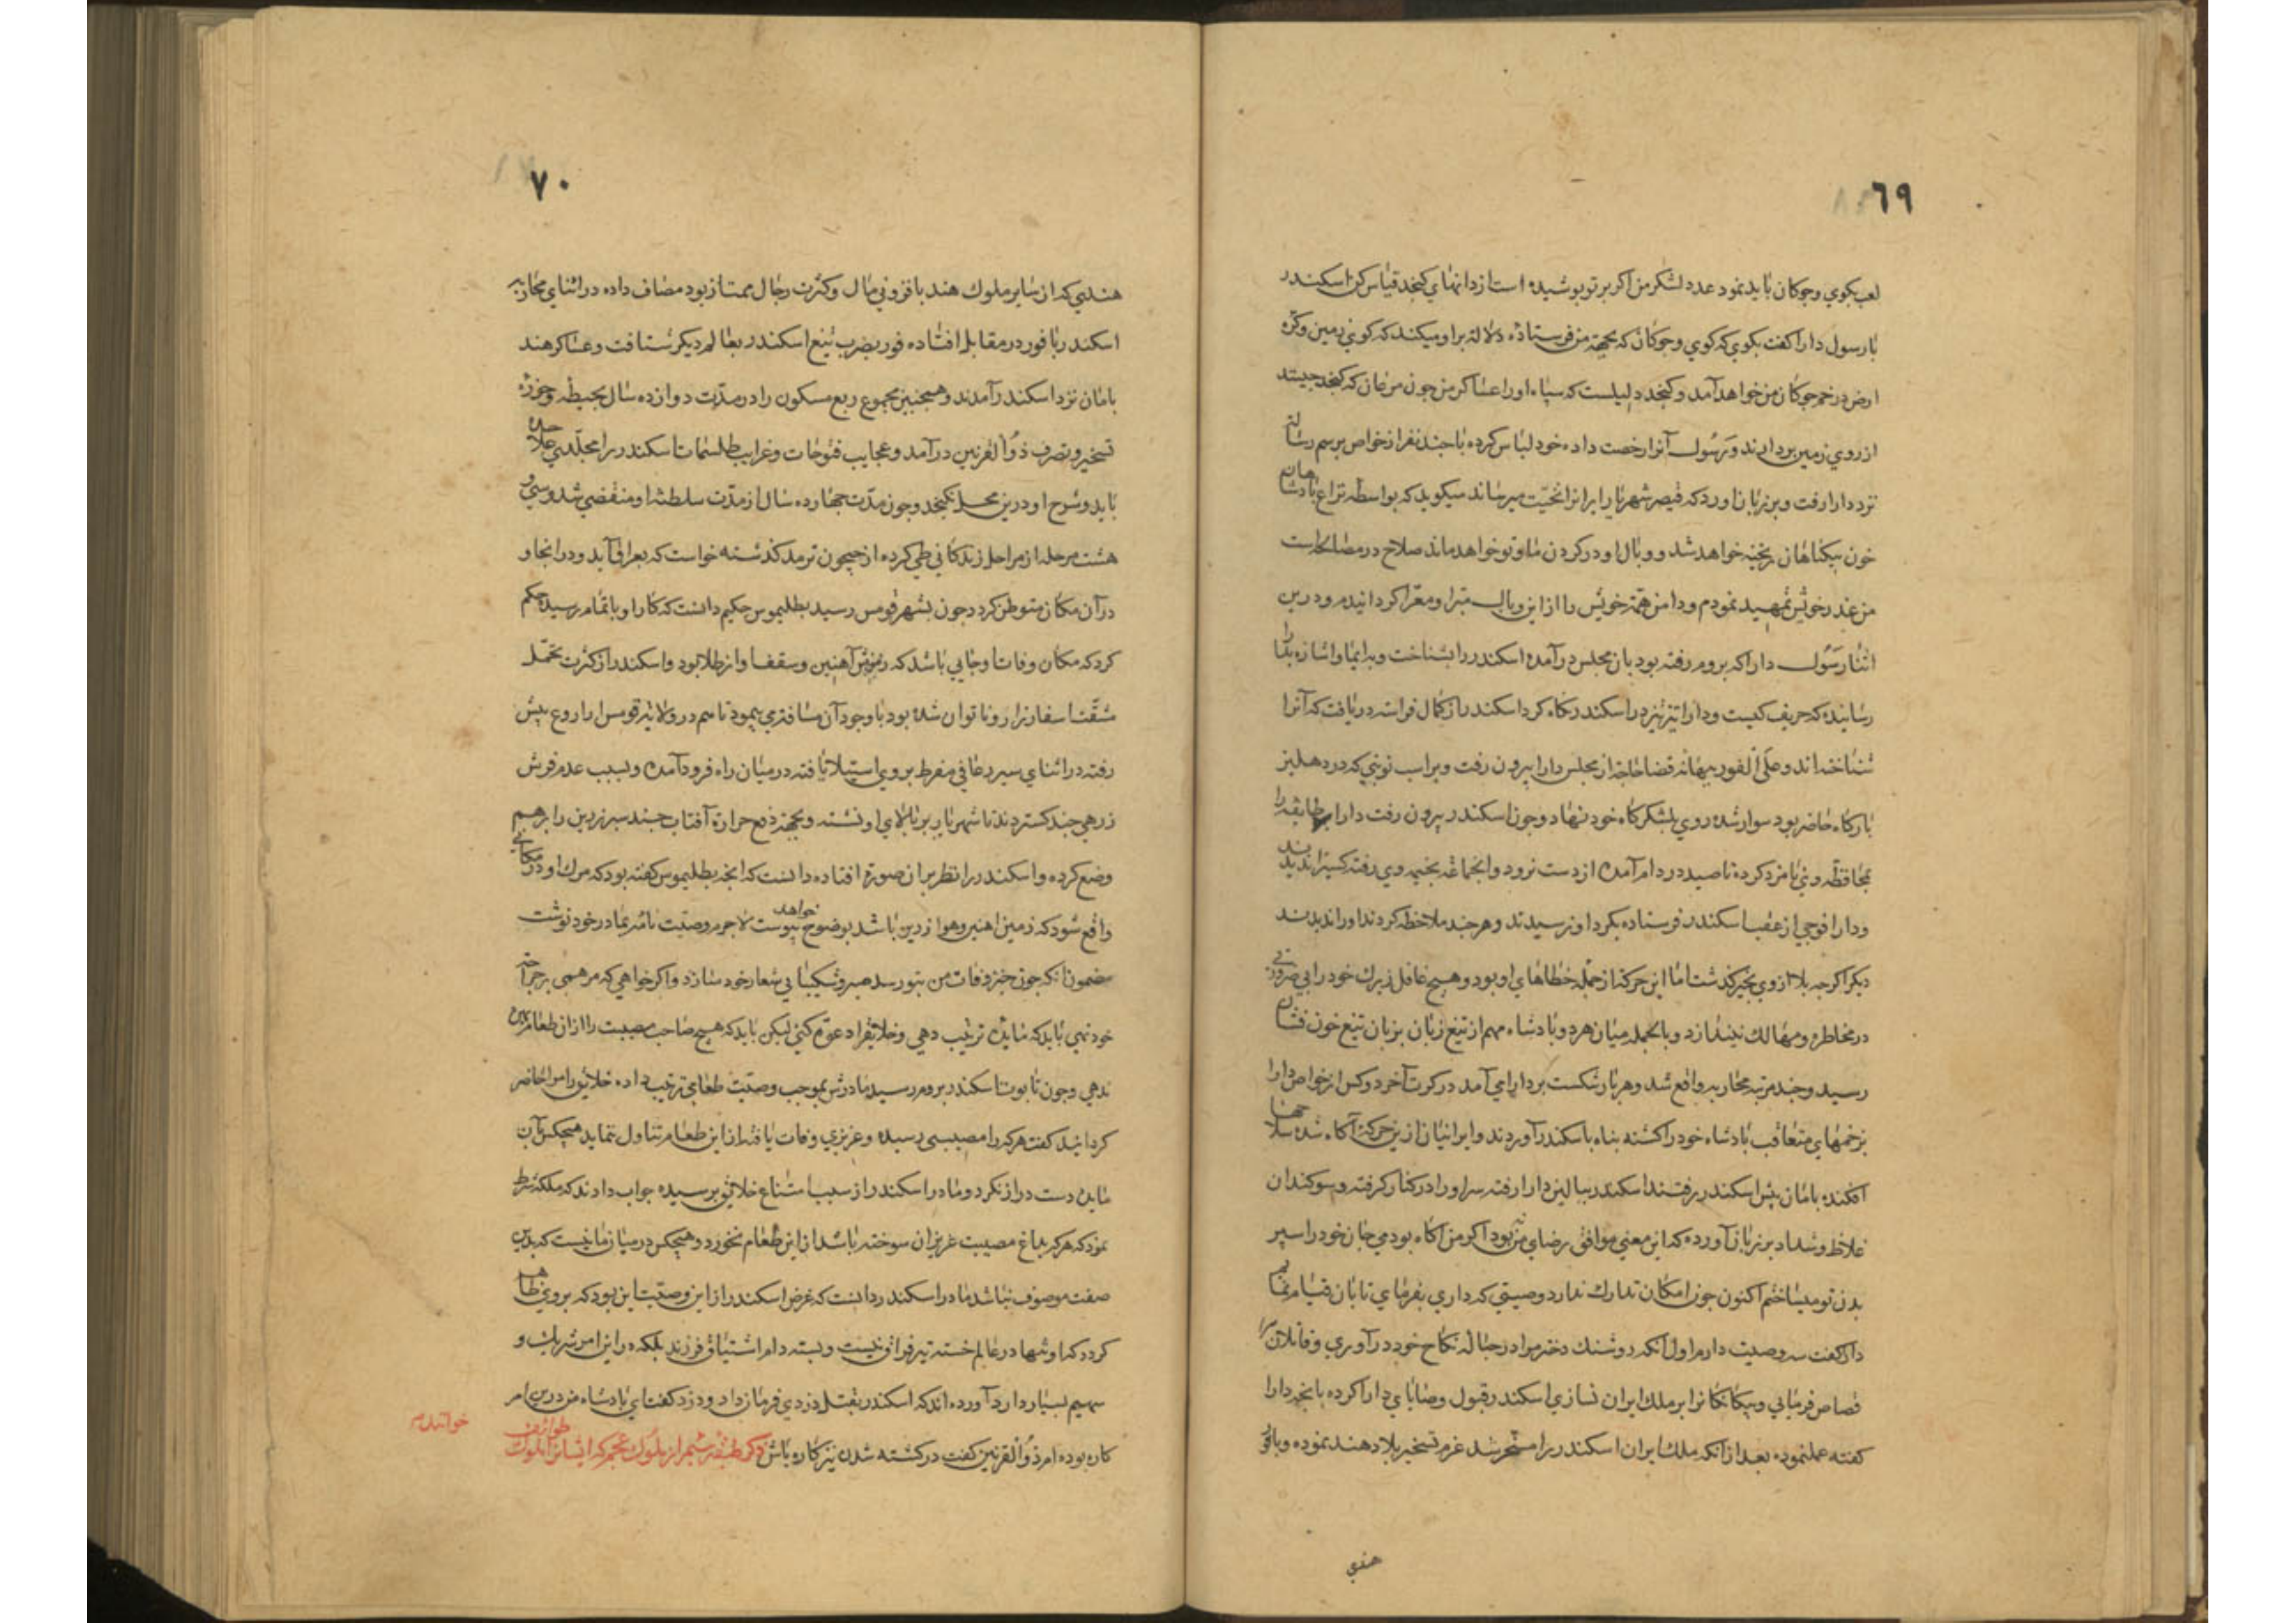 ٦٩
لعب بكوي وجوكان بايد نمود عدد لشكر من اكر بر تو پوشيده است از دانهاي كنجد قياس كن اسكندر
با رسول دارا كفت بكوي كه كوي وجوكان كه بجهة من فرستاده دلالة برا وميكند كه كوي زمين وكره
ارض در خم جوكان من خواهد آمد وكنجد دليلست كه سپاه او را عساكر من جون مرغان كه كنجد جينند
از روي زمين بردارند ورسول آنرا رخصت داده خود لباس كرده با جند نفر از خواص برسم رسالة
نزد دارا رفت وبر زبان اورد كه قيصر شهريار ايرانرا تحيت ميرساند ميكويد كه بواسطه نزاع پادشاهان
خون بيكناهان ريخته خواهد شد ووبال او در كردن ما وتو خواهد ماند صلاح در مصالحه است
من عذر خويش تمهيد نمودم ودامن همة خويش را از اين وبال مبرا ومعرا كردانيدم ودرين
اثنا رسول دارا كه بروم رفته بود بان مجلس درآمده اسكندر را بشناخت وبه ايما واشاره بقا را
رسانيده كه حريف كيست ودارا تيز تيز در اسكندر نكاه كرد اسكندر از كمال فراسة دريافت كه آنرا
شناخته اند وعلى الفور ببهانه قضا حاجة از مجلس دارا بيرون رفت وبر اسب نوبتي كه در دهليز
باركاه حاضر بود سوار شده روي بلشكركاه خود نهاد وجون اسكندر بيرون رفت دارا طايفه را
بمحافظه وي نامزد كرده تا صيد در دام آمده از دست نرود وانجماعة بخيمه وي رفته كسيرا نديدند
ودارا فوجي از عقب اسكندر فرستاده بكرد او نرسيدند وهر جند ملاحظه كردند او را نديدند
ديكر اكرجه بلا از وي بخير كذشت اما اين حركة از جمله خطاهاي او بود وهيج عاقل زيرك خود را بي ضرورتي
در مخاطره ومهالك نيندازد وبالجمله ميان هر دو پادشاه مهم از تيغ زبان بزبان تيغ خون فشان
رسيد وجند مرتبه محاربه واقع شد وهر بار شكست بر دارا مي آمد در كرت آخر دو كس از خواص دارا
بزخمهاي متعاقب پادشاه خود را كشته پناه باسكندر آوردند وايرانيان ازين حركة آكاه شده سلاحها
افكنده بامان پيش اسكندر رفتند اسكندر ببالين دارا رفته سر او را در كنار كرفته وسوكندان
غلاظ وشداد بر زبان آورده كه اين معني موافق رضاي من نبود اكر من آكاه بودمي جان خود را سپر
بدن تو ميساختم اكنون جون امكان تدارك ندارد وصيتي كه داري بفرماي تا بان قيام نمايم
دارا كفت سه وصيت دارم اول آنكه روشنك دختر مرا در حبالة نكاح خود درآوري وقاتلان مرا
قصاص فرمايي وبيكانكانرا بر ملك ايران نسازي اسكندر قبول وصاياي دارا كرده بانجه دارا
كفته عملنموده بعد از آنكه ملك ايران اسكندر را مسخر شد عزم تسخير بلاد هند نموده وبا فور
هندي
٧٠
هندي كه از ساير ملوك هند بافزوني مال وكثرت رجال ممتاز بود مصاف داده در اثناي محاربه
اسكندر با فور در مقابل افتاده فور بضرب تيغ اسكندر بعالم ديكر شتافت وعساكر هند
بامان نزد اسكندر آمدند وهمجنين مجموع ربع مسكون را در مدت دوازده سال بحيطه وحوزه
تسخير وتصرف ذو القرنين درآمد وعجايب فتوحات وغرايب طلسمات اسكندر را مجلدي جدا
بايد وشرح او درين محل نكنجد وجون مدت جهارده سال از مدت سلطنة او منقضي شد وسي و
هشت مرحله از مراحل زندكاني طي كرده از جيحون ترمد كذشته خواست كه بعراق آيد ودر انجا و
در آن مكان متوطن كردد جون بشهر قومس رسيد بطليموس حكيم دانست كه كار او باتمام رسيده حكم
كرد كه مكان وفات او جايي باشد كه زمينش آهنين وسقف او از طلا بود واسكندر از كثرت تحمل
مشقت اسفار نزار وناتوان شده بود با وجود آن مسافتي پيمود تا هم در ولاية قومس او را رعاف پيش
رفته در اثناي سير رعافي مفرط بر وي استيلا يافته در ميان راه فرود آمده وبسبب عدم فرش
زرهي جند كستردند تا شهريار بر بالاي او نشسته وبجهة دفع حرارة آفتاب جند سپر زرين را بر هم
وضع كرده واسكندر را نظر بران صورة افتاده دانست كه انجه بطليموس كفته بود كه مرك او در مكاني
واقع شود كه زمين آهنين وهوا زرين باشد بوضوح خواهد پيوست لاجرم وصيت نامه بمادر خود نوشت
مضمون آنكه جون خبر وفات من بتو رسد صبر وشكيبايي شعار خود سازد واكر خواهي كه مرهمي بر جراحة
خود نهي بايد كه مايده ترتيب دهي وخلايقرا دعوة كني ليكن بايد كه هيج صاحب مصيبت را از ان طعام
ندهي وجون تابوت اسكندر بروم رسيد مادرش بموجب وصيت طعامي ترتيب داده خلايق را حاضر
كردانيد كفت هر كه را مصيبتي رسيده وعزيزي وفات يافته از اين طعام تناول ننمايد هيجكس بآن
مايده دست دراز نكرد ومادر اسكندر از سبب امتناع خلايق پرسيده جواب دادند كه ملكه شرط
نمود كه هر كه بداغ مصيبت عزيزان سوخته باشد از اين طعام نخورد وهيجكس در ميان ما نيست كه بدين
صفت موصوف نباشد مادر اسكندر دانست كه غرض اسكندر از اين وصيت اين بود كه بر وي ظاهر
كردد كه او تنها در عالم خسته تير فراق نيست وبسته دام اشتياق فرزند بلكه در اين امر شريك و
سهيم بسيار دارد آورده اند كه اسكندر بقتل دزدي فرمان داد ودزد كفت اي پادشاه من درين امر
كاره بوده ام ذو القرنين كفت در كشته شدن نيز كاره باش ذكر طبقه سيم از ملوك عجم كه ايشانرا ملوك طوايف
خوانند